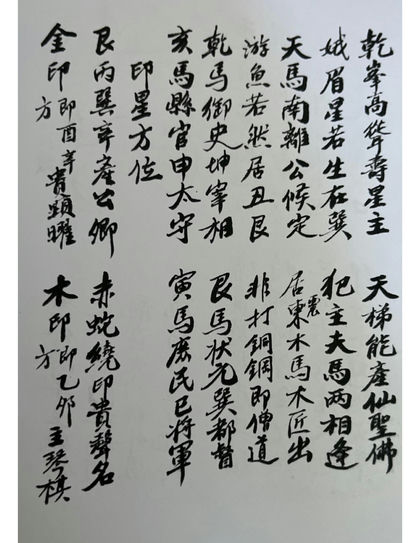 乾峯高聳壽星主　天梯能產仙聖佛
娥眉星若生在巽　犯主夫馬兩相逢
天馬南離公候定　居東震木馬木匠出
游魚若然居丑艮　非打銅鋼即僧道
乾馬御史坤宰相　艮馬狀元巽都督
亥馬縣官申太守　寅馬庶民巳將軍
印星方位
艮丙巽辛產公卿　赤蛇繞印貴聲名
金印即酉辛方貴顕曜　木印即乙卯方主琴棋